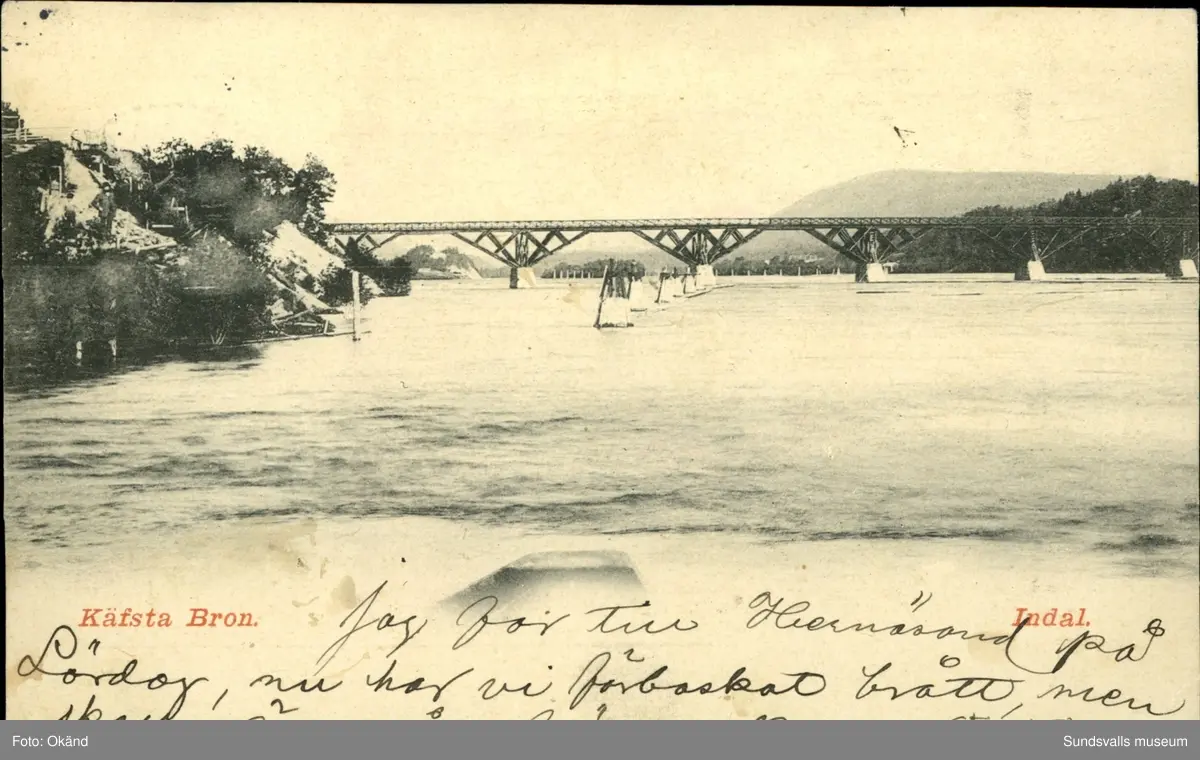 Käfsta Bron.
Indal.
Jag far till Hernösand på
Lördag, nu har vi förbaskat brått, men
Foto: Okänd
Sundsvalls museum